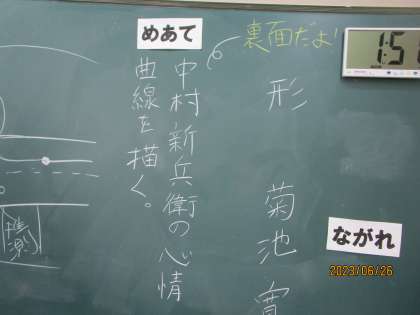 裏面だよ!
1:51
形
菊池寛
ながれ
めあて
中村新兵衛の心情
曲線を描く。
推測
2023/06/26